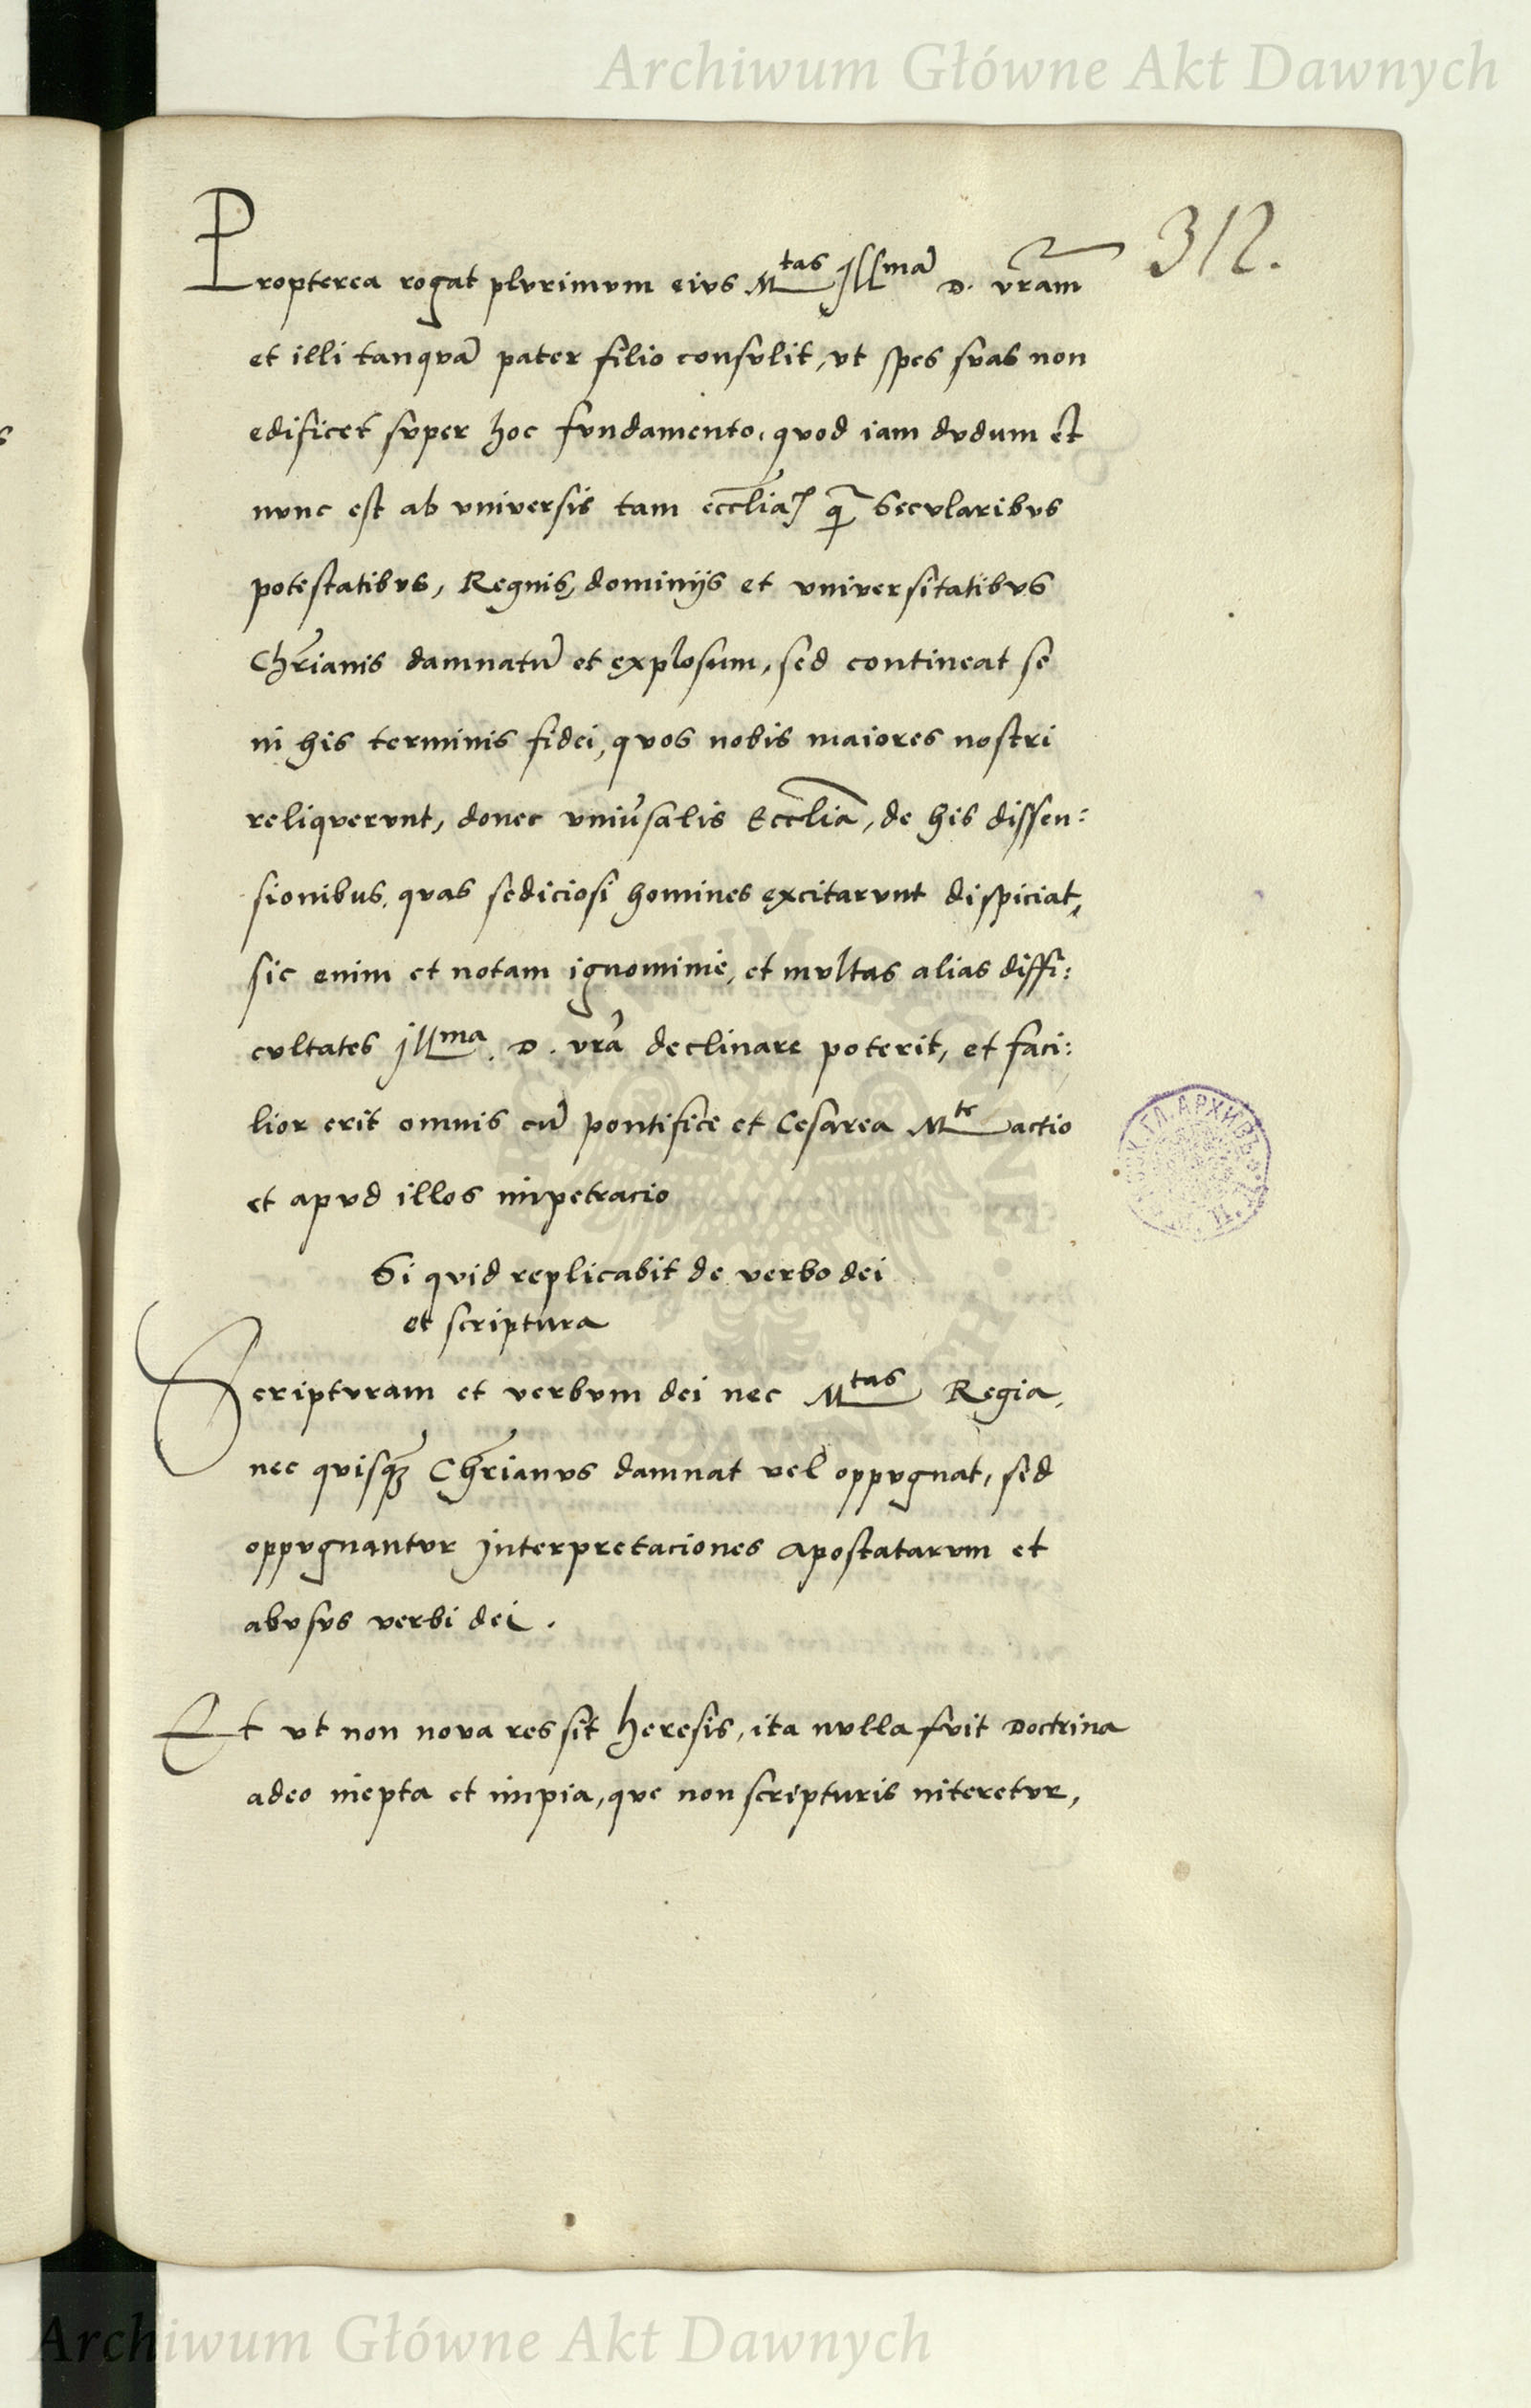 Archiwum Główne Akt Dawnych
312.
Propterea rogat plurimum eius Mtas Illmā D. vram
et illi tanquā pater filio consulit, ut spes suas non
edificet super hoc fundamento, quod iam dudum et
nunc est ab universis tam eccliā q̄ Secularibus
potestatibus, Regnis, dominijs et universitatibus
Chrianis damnatū et explosum, sed contineat se
in his terminis fidei, quos nobis maiores nostri
reliquerunt, donec univ̄salis Ecclia, de his dissen:
sionibus, quas sediciosi homines excitarunt dispiciat,
sic enim et notam ignominie, et multas alias diffi:
cultates Illma. D. vrā declinare poterit, et faci:
lior erit omnis cū pontifice et Cesarea Mte actio
et apud illos impetracio
Si quid replicabit de verbo dei
et scriptura
Scripturam et verbum dei nec Mtas Regia,
nec quisqȝ Chrianus damnat vel oppugnat, sed
oppugnantur Interpretaciones apostatarum et
abusus verbi dei.
Et ut non nova res sit heresis, ita nulla fuit Doctrina
adeo inepta et impia, que non scripturis niteretur,
Archiwum Główne Akt Dawnych